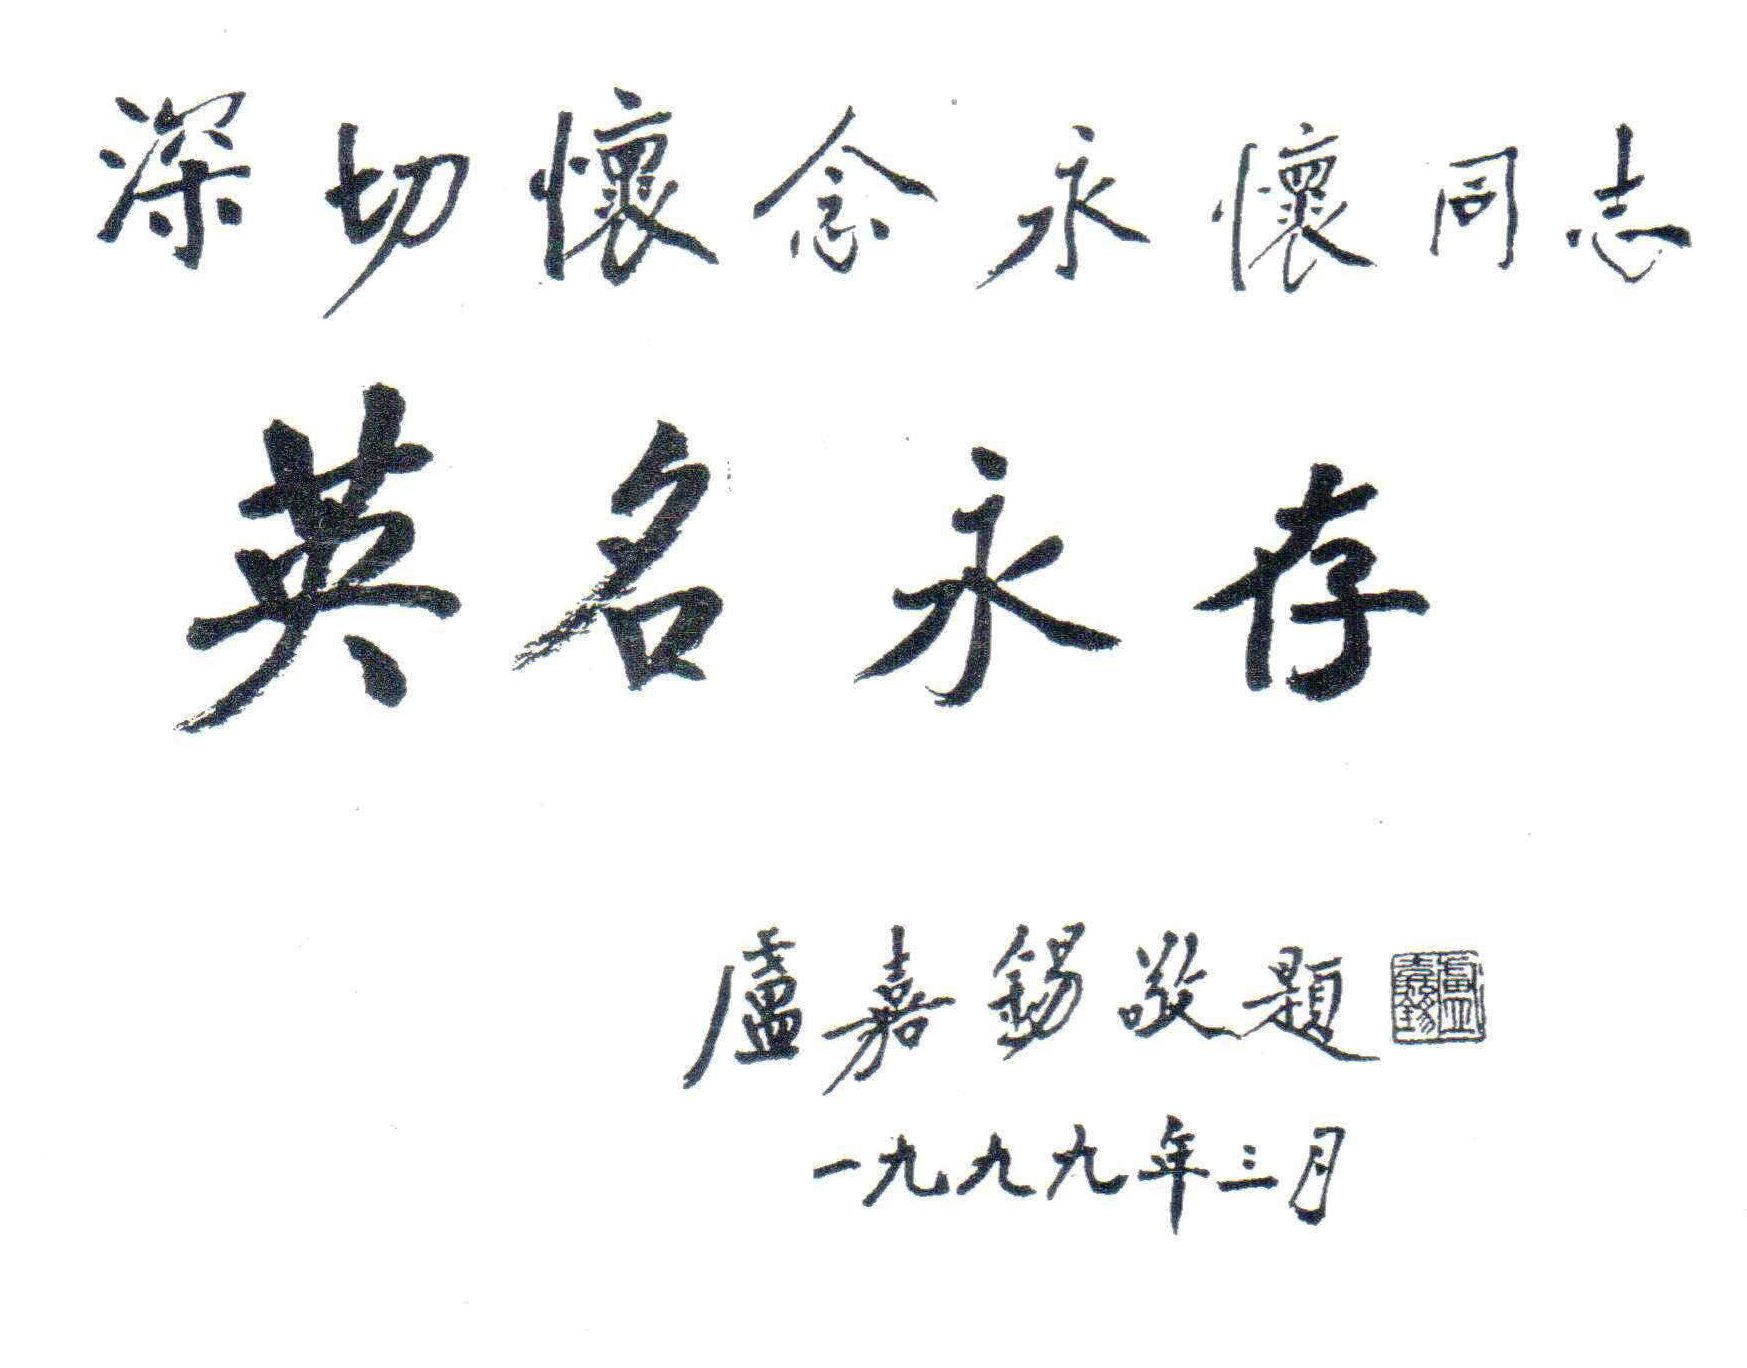 深切懷念永懷同志
英名永存
盧嘉錫敬題
盧嘉錫
一九九九年三月